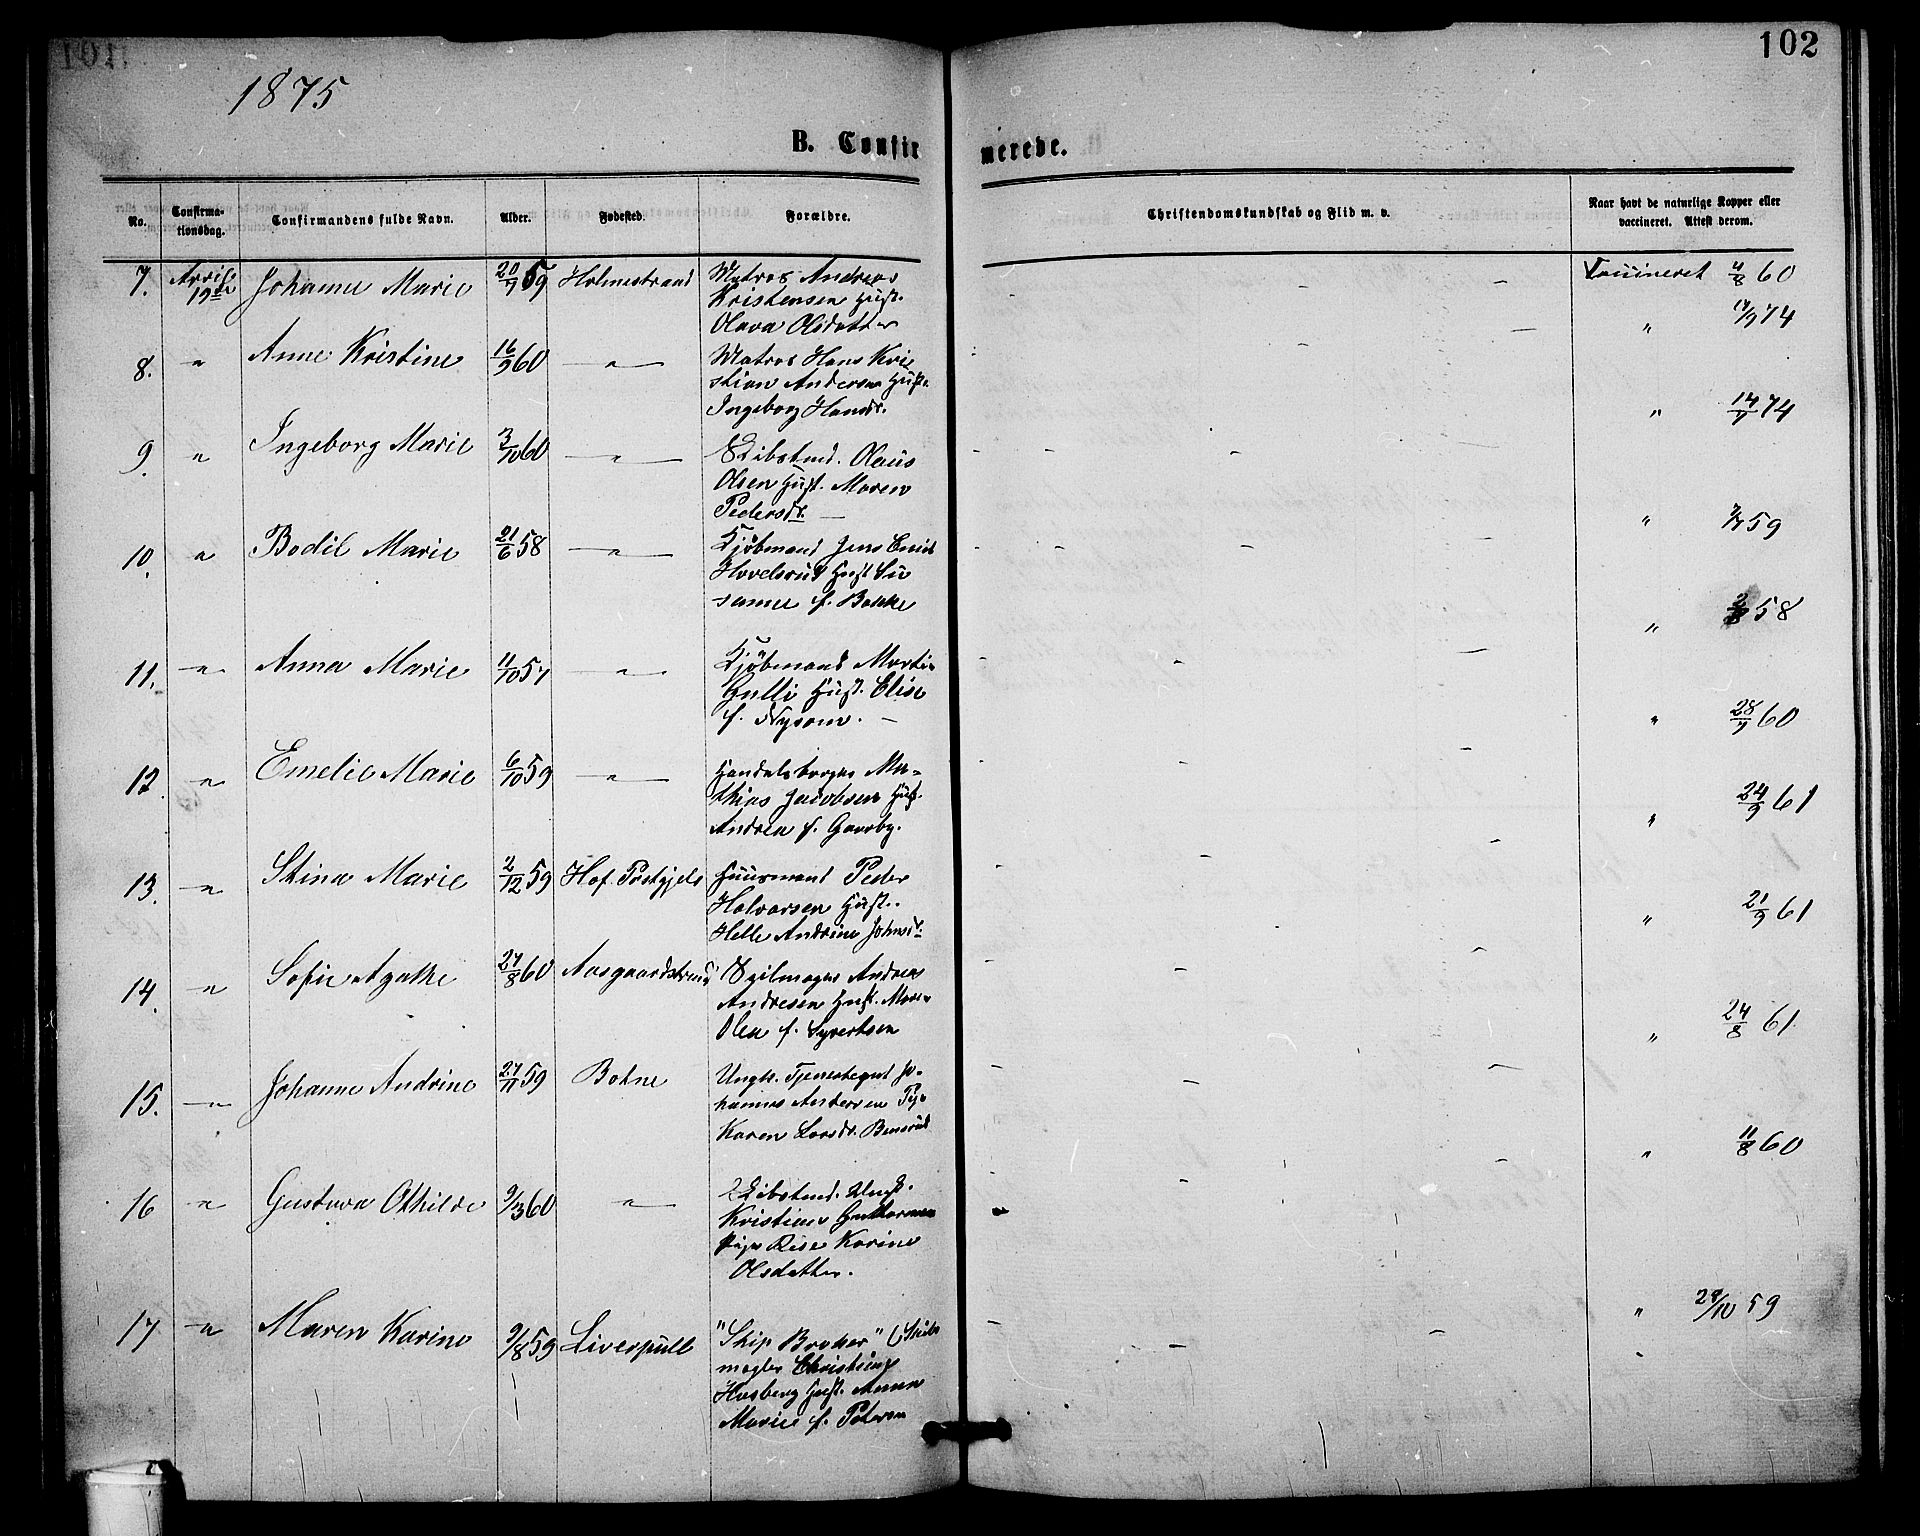 102
1875
B. Confirmerede.
No. Confirmationsdag. Confirmandens fulde Navn. Alder. Fødested. Forældre. Christendomskundskab og Flid m. v. Naar havt de naturlige Kopper eller vaccineret. Attest derom.
7. April 19de Johanne Marie 20/7 59 Holmestrand Matros Andreas
Kristensen Hust.
Olava Olsdatter
Vaccineret 4/8 60
8. " Anne Kristine 16/9 60 " Matros Hans Kri
stian Andersen Hust.
Ingeborg Hansdr.
" 74
9. " Ingeborg Marie 3/10 60 " Skibstmd. Olaus
Olsen Hust. Maren
Pedersdr.
" 14/7 74
10. " Bodil Marie 21/6 58 " Kjøbmand Jens Emil
Hovelsrud Hust Su
sanne f. Bakke
" 59
11. " Anna Marie 11/10 57 " Kjøbmand Marti
Gulli Hust. Elise
f. Nysom.
" 58
12. " Emelie Marie 6/10 59 " Handelsborger Ma-
thias Jacobsen Hust.
Andrea f. Gaarby.
" 28/7 60
13. " Stina Marie 2/12 59 Hof. Prstgjeld Huusmand Peder
Halvorsen Hust.
Helle Andrine Johnsdr.
" 24/9 61
14. " Sofie Agathe 27/8 60 Aasgaardstrand Seilmager Andreas
Andresen Hust. Mare
Olea f. Syvertsen
" 21/9 61
15. " Johanne Andrine 27/11 59 Botne Ungk. Tjenestegut Jo-
hannes Andersen Pige
Karen Larsdr.
" 24/8 61
16 " Gustava Othilde 9/3 60 " Skibstmd. Ungk.
Kristian Guttormsen
Pige Rise Karine
Olsdatter.
" 11/8 60
17 " Maren Karine 9/8 59 Liverpull "Ship Broker" (Skibs
mægler Christian
Hasberg Hust. Anna
Marie f. Petersen
" 59